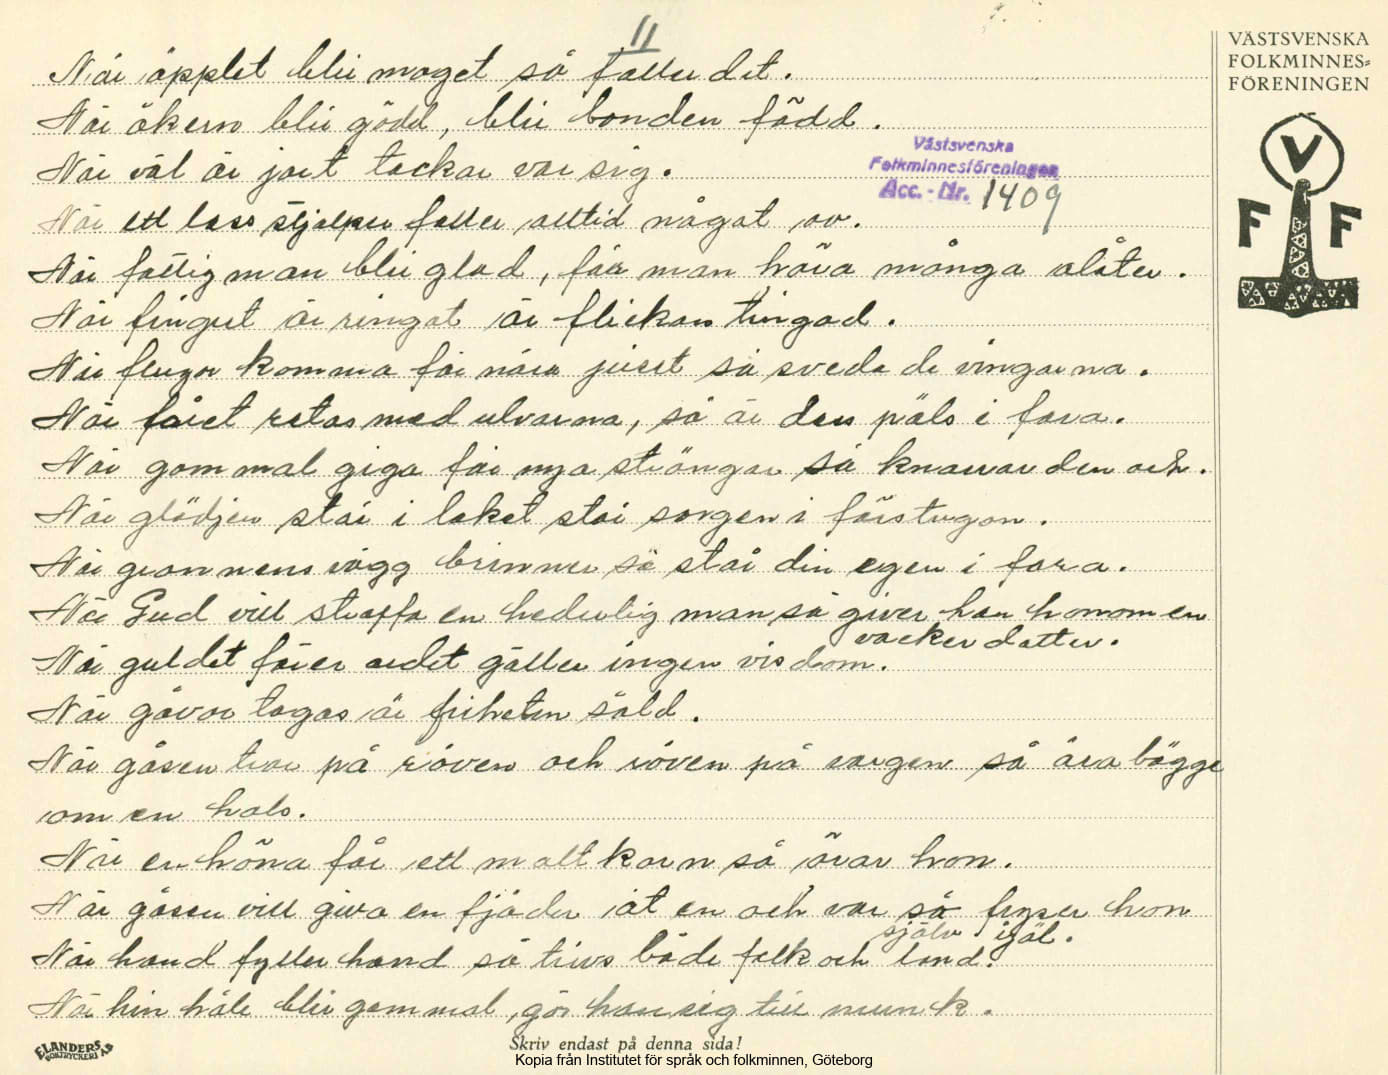 11
När äpplet blir moget så faller det.
När åkern blir gödd, blir bonden född.
När väl är gjort tackar var sig.
När ett lass stjälper faller alltid något av.
När fattig man blir glad, får man höra många låter.
När fingret är ringat är flickan tingad.
När flugor komma för nära ljuset så sveda de vingarna.
När fåret retas med ulvarna, så är dess päls i fara.
När gammal giga får nya strängar så knarrar den och.
När glädjen står i laket står sorgen i förstugan.
När grannens vägg brinner så står din egen i fara.
När Gud vill straffa en hederlig man så giver han honom en
vacker dotter.
När guldet förer ordet gäller ingen visdom.
När gåvor tagas är friheten såld.
När gåsen tror på räven och räven på vargen så ära bägge
om en hals.
När en höna får ett maltkorn så övar hon.
När gåsen vill giva en fjäder åt en och var så fryser hon
själv ihjäl.
När hand fyller hand så trivs både folk och land.
När hin håle blir gammal, gör han sig till munk.
Västsvenska
Folkminnesföreningen
Acc.-Nr. 1409
VÄSTSVENSKA
FOLKMINNES=
FÖRENINGEN
V
F F
ELANDERS
BOKTRYCKERI AB
Skriv endast på denna sida!
Kopia från Institutet för språk och folkminnen, Göteborg